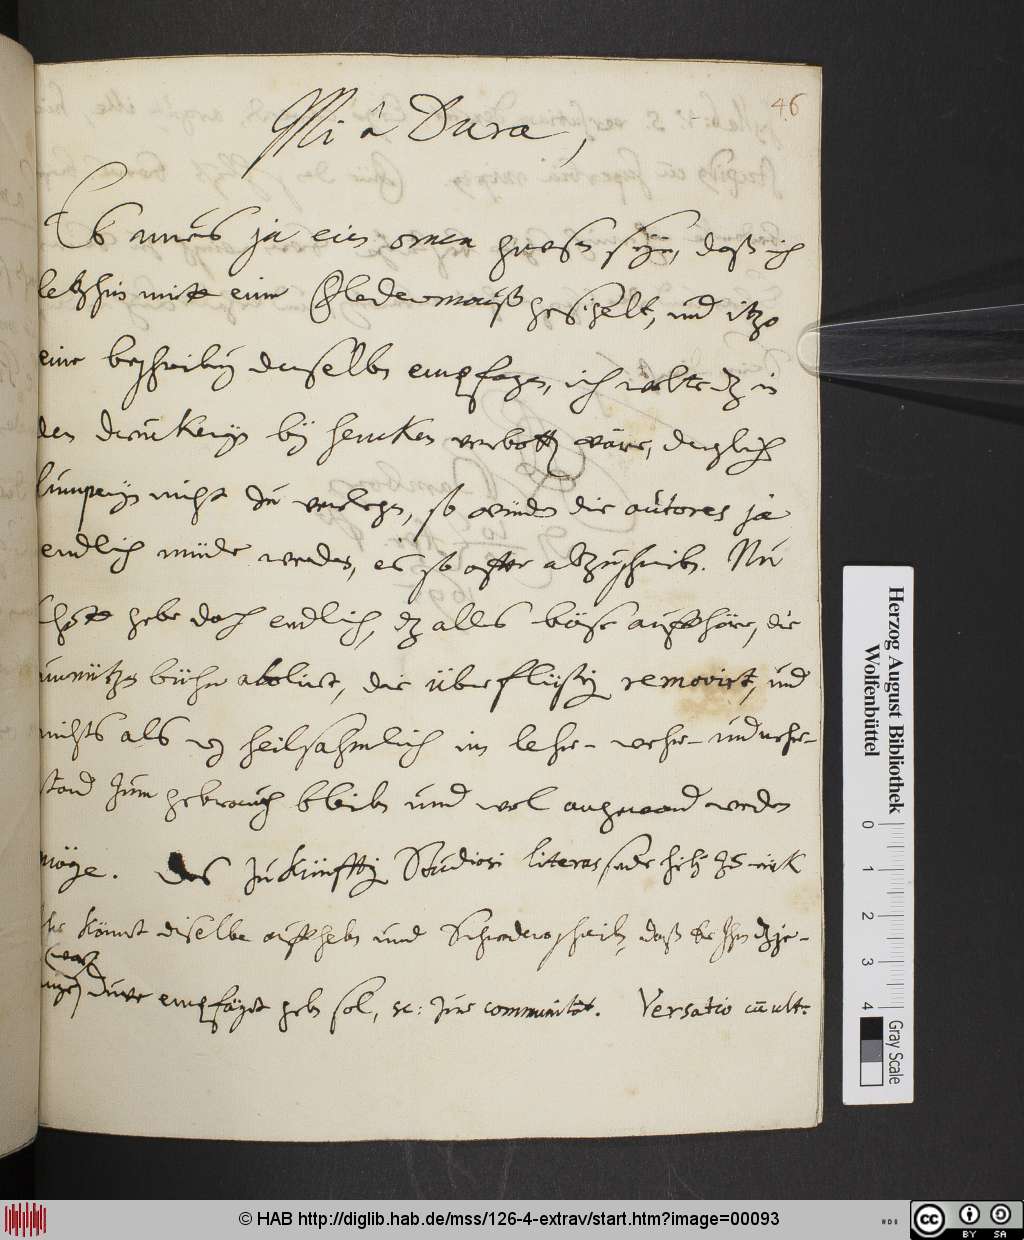 46
Mi â Dura,
Es mus ja ein omen gewesen seyn, daß ich
letzhin mitt einer Fledermauß gespielt, und itzo
eine beschreibung derselben empfangen, ich wolte dz in
den druckereyen bey hencken verbotten wäre, dergleichen
lumpereyen nicht zu verlegen, so würden die autores ja
endlich müde werden, es so ofte abzuschreiben. Nu
Gott gebe doch endlich, dz alles böse auffhöre, die
unnützen bücher abolirt, die überflüßigen removirt, und
nichts als heilsahmlich im lehr- wehr- und nehr-
stand zum gebrauch bleiben und wol angewand werden
möge. Des zukünfftigen Studiosi literas
könnt dieselbe auffheben und schreiben, daß er Ihm dzje-
nige empfängt geben sol, sc: communität. Versatio cũ ult:
Herzog August Bibliothek
Wolfenbüttel
0 1 2 3 4
Gray Scale
© HAB http://diglib.hab.de/mss/126-4-extrav/start.htm?image=00093
cc BY SA